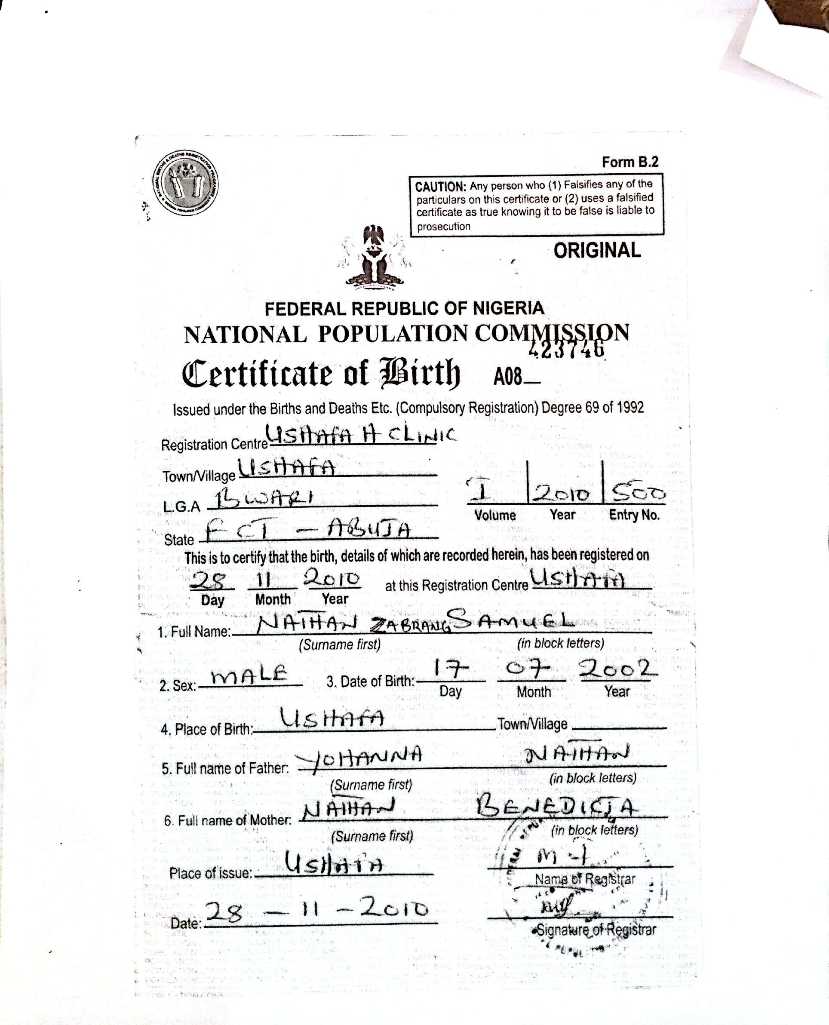 Form B.2
CAUTION: Any person who (1) Falsifies any of the
particulars on this certificate or (2) uses a falsified
certificate as true knowing it to be false is liable to
prosecution
ORIGINAL
FEDERAL REPUBLIC OF NIGERIA
NATIONAL POPULATION COMMISSION
423746
Certificate of Birth A08
Issued under the Births and Deaths Etc. (Compulsory Registration) Degree 69 of 1992
Registration Centre USHAFA H CLINIC
Town/Village USHAFA
L.G.A BWARI
I 2010 500
Volume Year Entry No.
State FCT - ABUJA
This is to certify that the birth, details of which are recorded herein, has been registered on
28 11 2010 at this Registration Centre USHAFA
Day Month Year
1. Full Name: NATHAN ZABRANG SAMUEL
(Surname first) (in block letters)
2. Sex: MALE 3. Date of Birth: 17 07 2002
Day Month Year
4. Place of Birth: USHAFA Town/Village
5. Full name of Father: YOHANNA NATHAN
(Surname first) (in block letters)
6. Full name of Mother: NATHAN BENEDICTA
(Surname first) (in block letters)
Place of issue: USHAFA
Name of Registrar
Date: 28 - 11 - 2010
Signature of Registrar